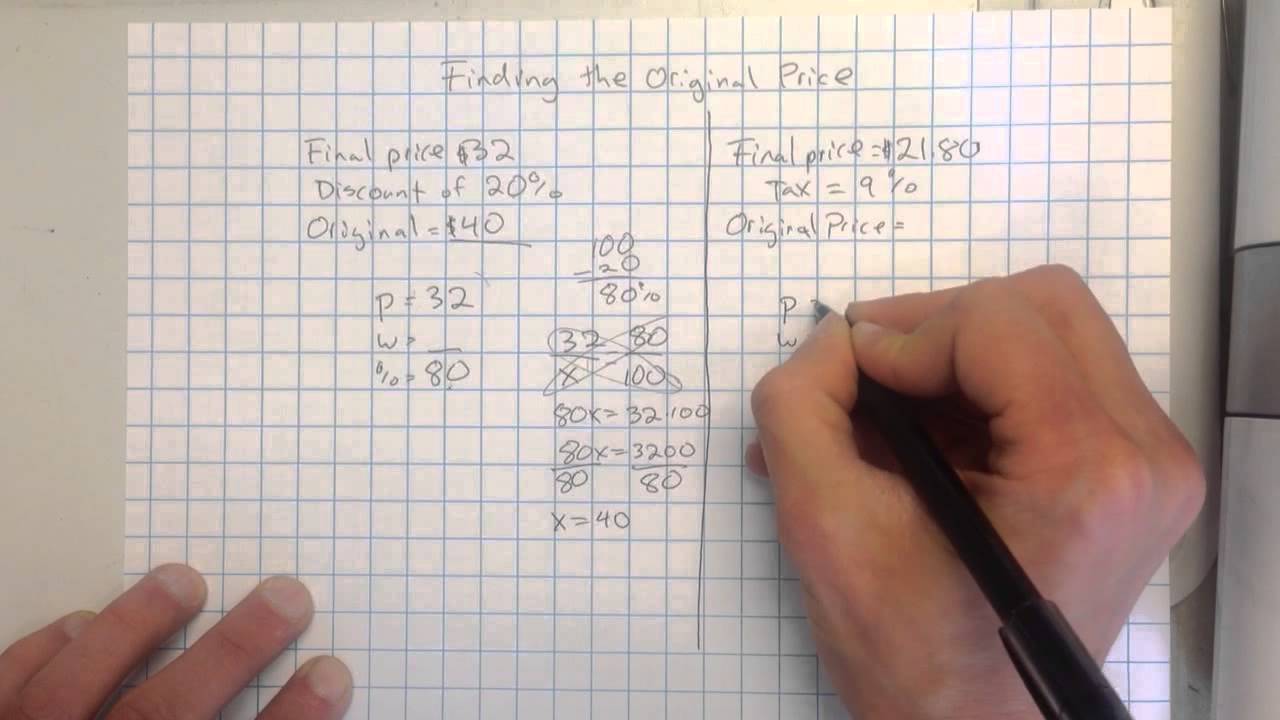 Finding the Original Price
Final price $32
Discount of 20%
Original = $40
100
- 20
80%
p = 32
w = __
% = 80
32 80
x 100
80x = 32·100
80x = 3200
80 80
x = 40
Final price = $21.80
Tax = 9%
Original Price =
p =
w